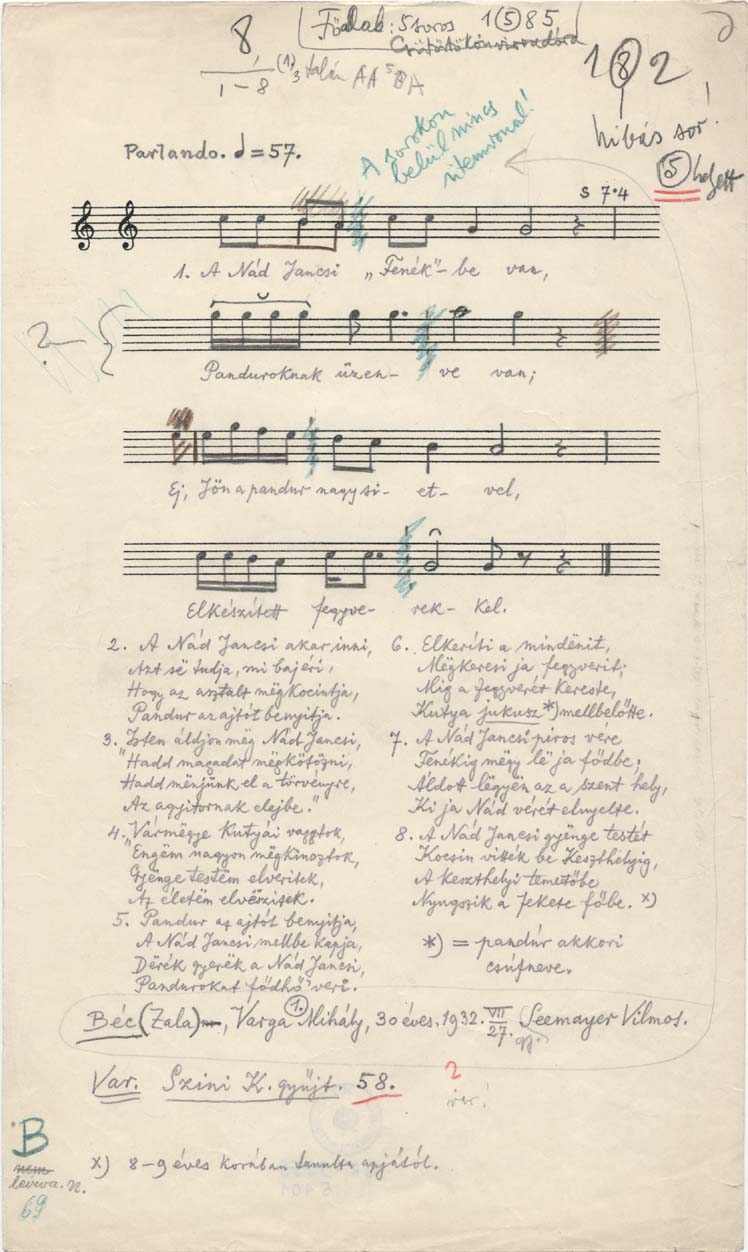 Főalak: 5 soros 1(5)85,
Csütörtökön virradóra
8,
1–8 (1) 3 talán AA⁵BA
1(8)2
hibás sor!
(5) helyett
A sorokon
belül nincs
ütemvonal!
Parlando. = 57.
s 7·4
1. A Nád Jancsi „Fenék"-be van,
?
Panduroknak üzen- ve van;
Ej, Jön a pandur nagy si- et- vel,
Elkészített fegyve- rek- kel.
2. A Nád Jancsi akar inni,
Azt së tudja, mi bajéri,
Hogy az asztalt mëgkocintja,
Pandur az ajtót benyitja.
3. „Isten áldjon mëg Nád Jancsi,
Hadd magadat mëgkötözni,
Hadd mënjünk el a törvényre,
Az agyitornak elejbe."
4. „Vármëgye kutyái vagytok,
Engëm nagyon mëgkinoztok,
Gyënge testëm elveritek,
Az életëm elvëszitek.
5. Pandur az ajtót benyitja,
A Nád Jancsi mellbe kapja,
Dërék gyerëk a Nád Jancsi,
Pandurokat födhö veri.
6. Elkeríti a mindënit,
Mëgkeresi ja fegyverit;
Mig a fegyverér kereste,
Kutya jukusz *) mellbelőtte.
7. A Nád Jancsi piros vére
Fenékig mëgy lë ja fődbe;
Áldott lëgyën az a szent hely,
Ki ja Nád vérét elnyelte.
8. A Nád Jancsi gyënge testét
Kocsin vitték be Keszthelyig,
A keszthelyi temetőbe
Nyugszik a fekete főbe. x)
*) = pandúr akkori
csúfneve.
Béc (Zala), Varga (1.) Mihály, 30 éves. 1932. VII 27. Seemayer Vilmos.
gy.
Var. Szini K. gyüjt. 58.
2
var!
B
nem
leírva. n.
69
x) 8–9 éves korában tanulta apjától.